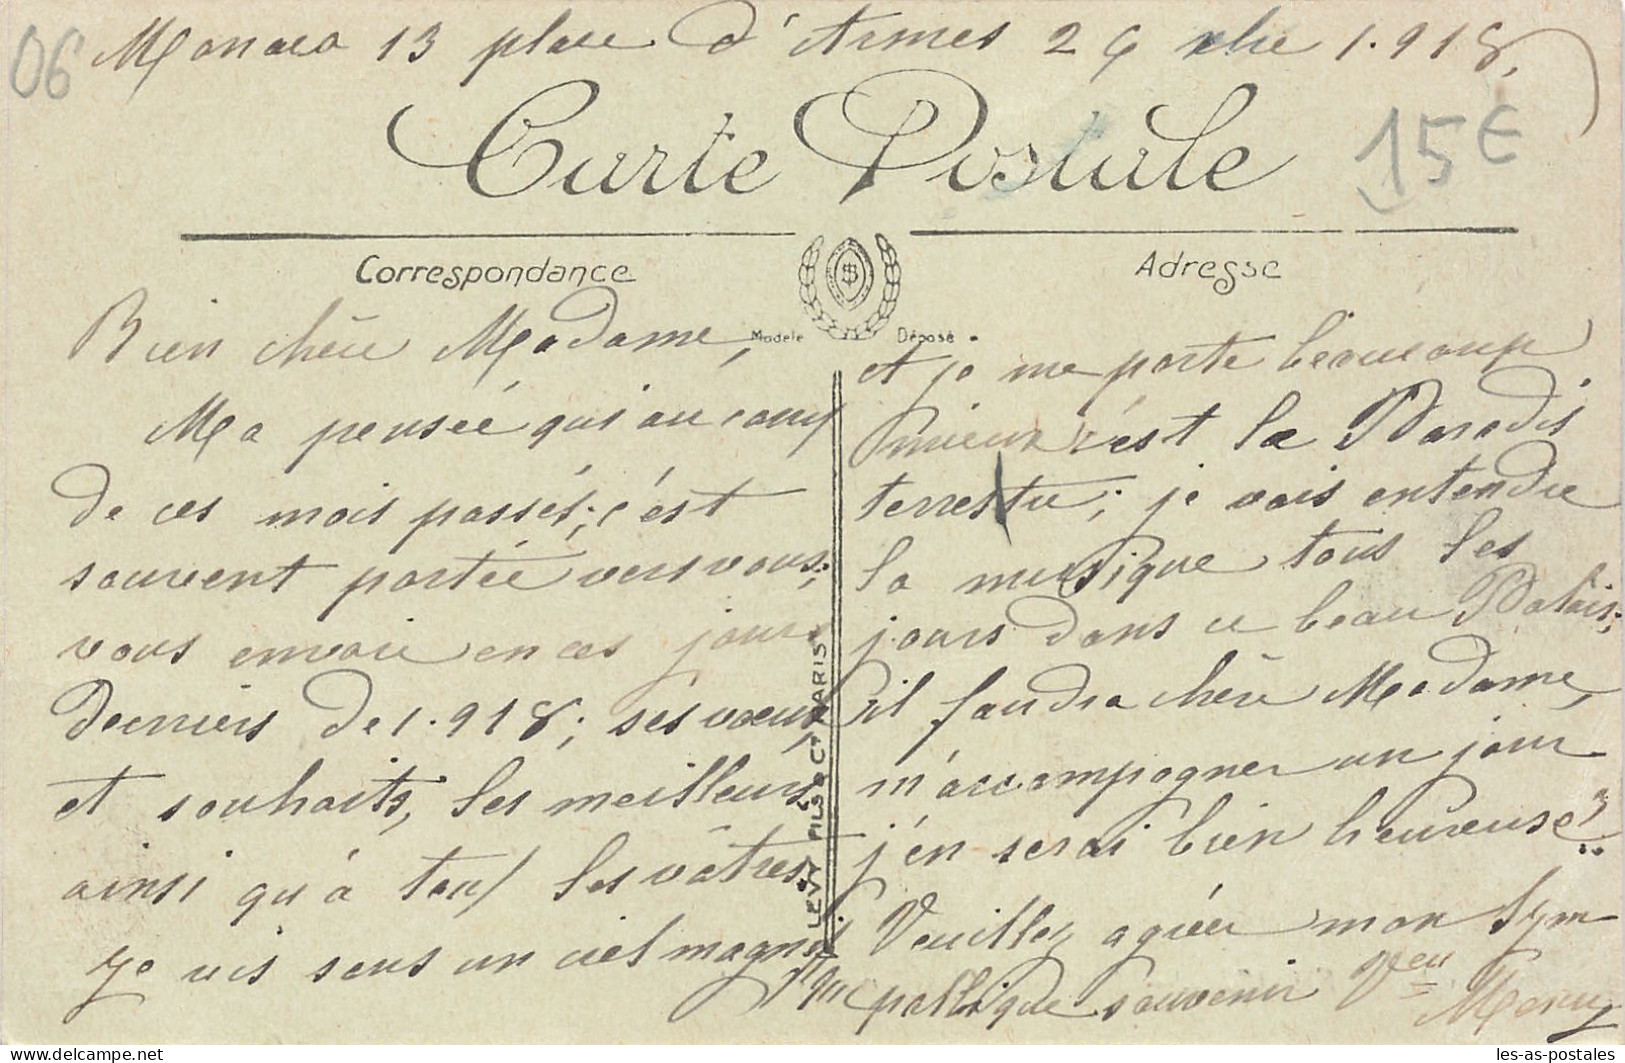 06
Monaco 13 place d'Armes 29 xbre 1.918,
Carte Postale
15€
Correspondance
Adresse
Modele Déposé
Bien chère Madame,
Ma pensée qui au cours
de ces mois passés; c'est
souvent portée vers vous;
vous envoie en ces jours
derniers de 1.918; ses vœux
et souhaits, les meilleurs
ainsi qu'à tous les vôtres,
Je vis sous un ciel magni
fique
et je me porte beaucoup
mieux c'est le Paradis
terrestre; je vais entendre
la musique tous les
jours dans ce beau Palais;
il faudra chère Madame,
m'accompagner un jour
j'en serai bien heureuse!..
Veuillez agréer mon sym
pathique souvenir Veu
LEVY FILS & Cie PARIS
les-as-postales